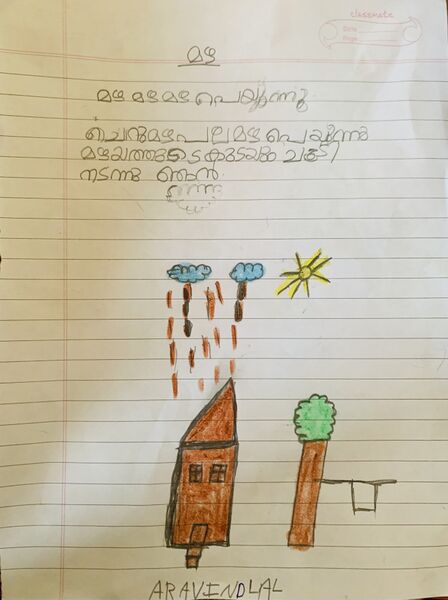 classmate
Date
Page
മഴ
മഴ മഴ മഴ പെയ്യുന്നു
ചെറുമഴ പല മഴ പെയ്യുന്നു
മഴയത്തൂടെ കുടയും ചൂടി
നടന്നു ഞാൻ
ARAVINDLAL